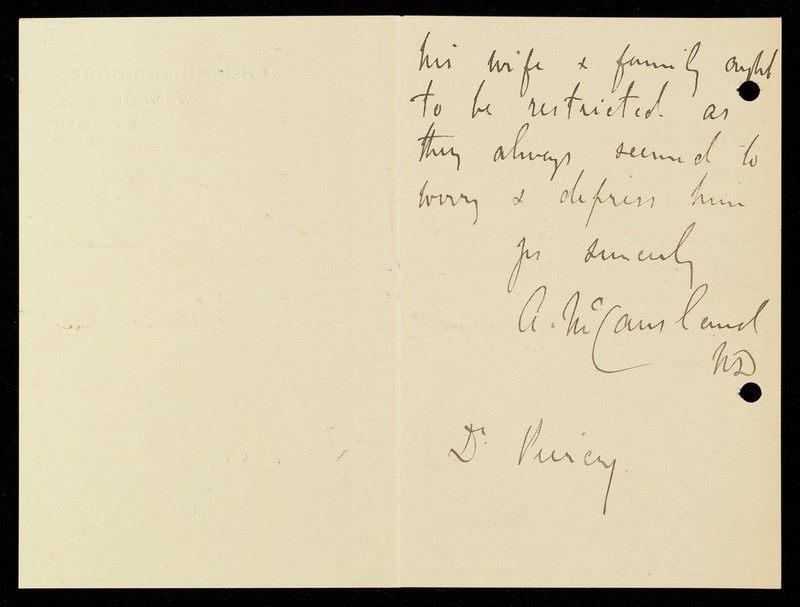 his wife & family ought
to be restricted as
they always seemed to
worry & depress him
yrs sincerely
A. McCausland
MD
Dr